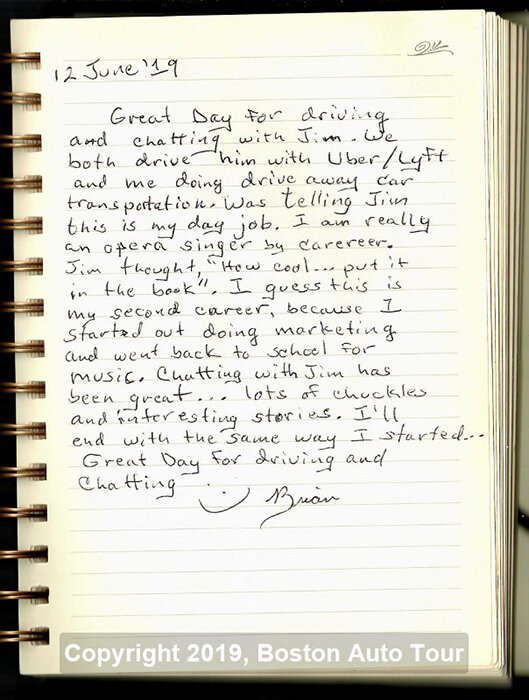 12 June '19
Great Day for driving
and chatting with Jim. We
both drive him with Uber/Lyft
and me doing drive away car
transportation. Was telling Jim
this is my day job. I am really
an opera singer by carereer.
Jim thought, "How cool... put it
in the book". I guess this is
my second career, because I
started out doing marketing
and went back to school for
music. Chatting with Jim has
been great... lots of chuckles
and interesting stories. I'll
end with the same way I started...
Great Day for driving and
Chatting
Brian
Copyright 2019, Boston Auto Tour